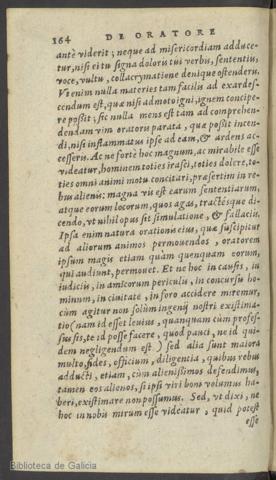 164 DE ORATORE
antè viderit; neque ad misericordiam adduce-
tur, nisi ei tu signa doloris tui verbis, sententiis,
voce, vultu, collacrymatione denique ostenderis.
Vt enim nulla materies tam facilis ad exardes-
cendum est, quæ nisi admoto igni, ignem concipe-
re possit; sic nulla mens est tam ad comprehen-
dendam vim oratoris parata, quæ possit incen-
di, nisi inflammatus ipse ad eam, & ardens ac-
cesseris. Ac ne fortè hoc magnum, ac mirabile esse
videatur, hominem toties irasci, toties dolere, to-
ties omni animi motu concitari, præsertim in re-
bus alienis: magna vis est earum sententiarum,
atque eorum locorum, quos agas, tractésque di-
cendo, vt nihil opus sit simulatione, & fallaciis.
Ipsa enim natura orationis eius, quæ suscipitur
ad aliorum animos permouendos, oratorem
ipsum magis etiam quàm quenquam eorum,
qui audiunt, permouet. Et ne hoc in causis, in
iudiciis, in amicorum periculis, in concursu ho-
minum, in ciuitate, in foro accidere miremur,
cùm agitur non solùm ingenij nostri existima-
tio (nam id esset leuius, quanquam cùm profes-
sus sis, te id posse facere, quod pauci, ne id qui-
dem negligendum est) sed alia sunt maiora
multo, fides, officium, diligentia, quibus rebus
adducti, etiam, cùm alienissimos defendimus,
tamen eos alienos, si ipsi viri boni volumus ha-
beri, existimare non possumus. Sed, vt dixi, ne
hoc in nobis mirum esse videatur, quid potest
esse
Biblioteca de Galicia